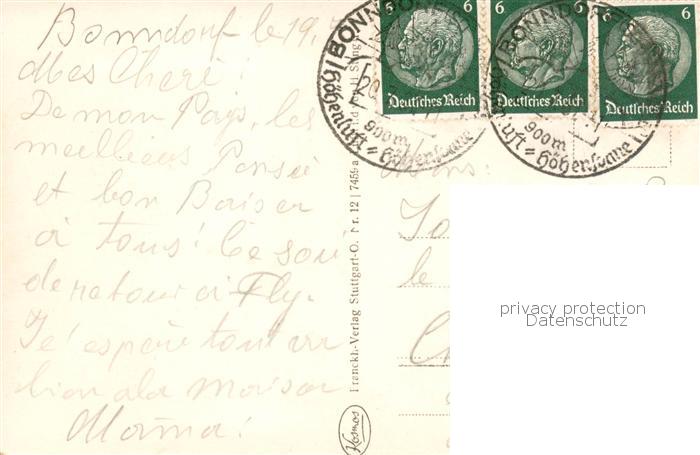 Bonndorf le 19.
Mes Cheri!
De mon Pays, les
meilleurs Pensée
et bon Baiser
à tous! Ce soir
de retour à Fly.
Je éspère tout va
bien a la Maison
Mama!
6 6 6 6 6
Deutsches Reich
Deutsches Reich
Deutsches Reich
BONNDORF
900m
Höhenluft = Höhensonne
BONNDORF
900m
Höhensonne
Franckh-Verlag Stuttgart-O. Nr. 12 | 7459a
Kosmos
privacy protection
Datenschutz